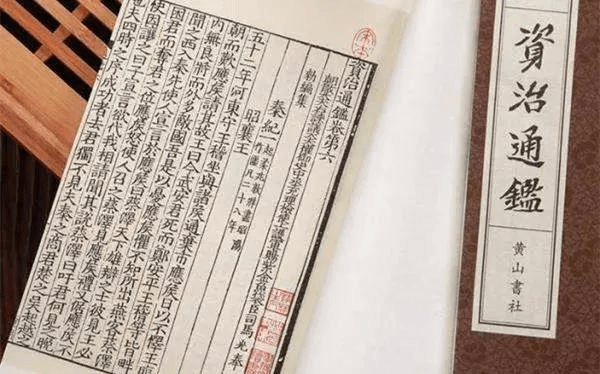 資治通鑑卷第六
朝散大夫右諫議大夫權御史中丞充理檢使護軍賜紫金魚袋臣司馬光奉
勑編集
秦紀
昭襄王
五十二年河東守王稽坐與諸侯通棄市應侯日以不懌王臨
朝而歎應侯請其故王曰今武安君死而鄭安平王稽等皆畔
內無良將而外多敵國吾是以憂應侯懼不知所出燕客蔡澤
聞之西入秦先使人宣言於應侯曰蔡澤天下雄辯之士彼見王必
困君而奪君之位應侯怒使人召之蔡澤見應侯禮又倨應侯不
快因讓之曰子宣言欲代我相請聞其說蔡澤曰吁君何見之晚
也夫四時之序成功者去君獨不見夫秦之商君楚之吳起越之
資治通鑑
黃山書社